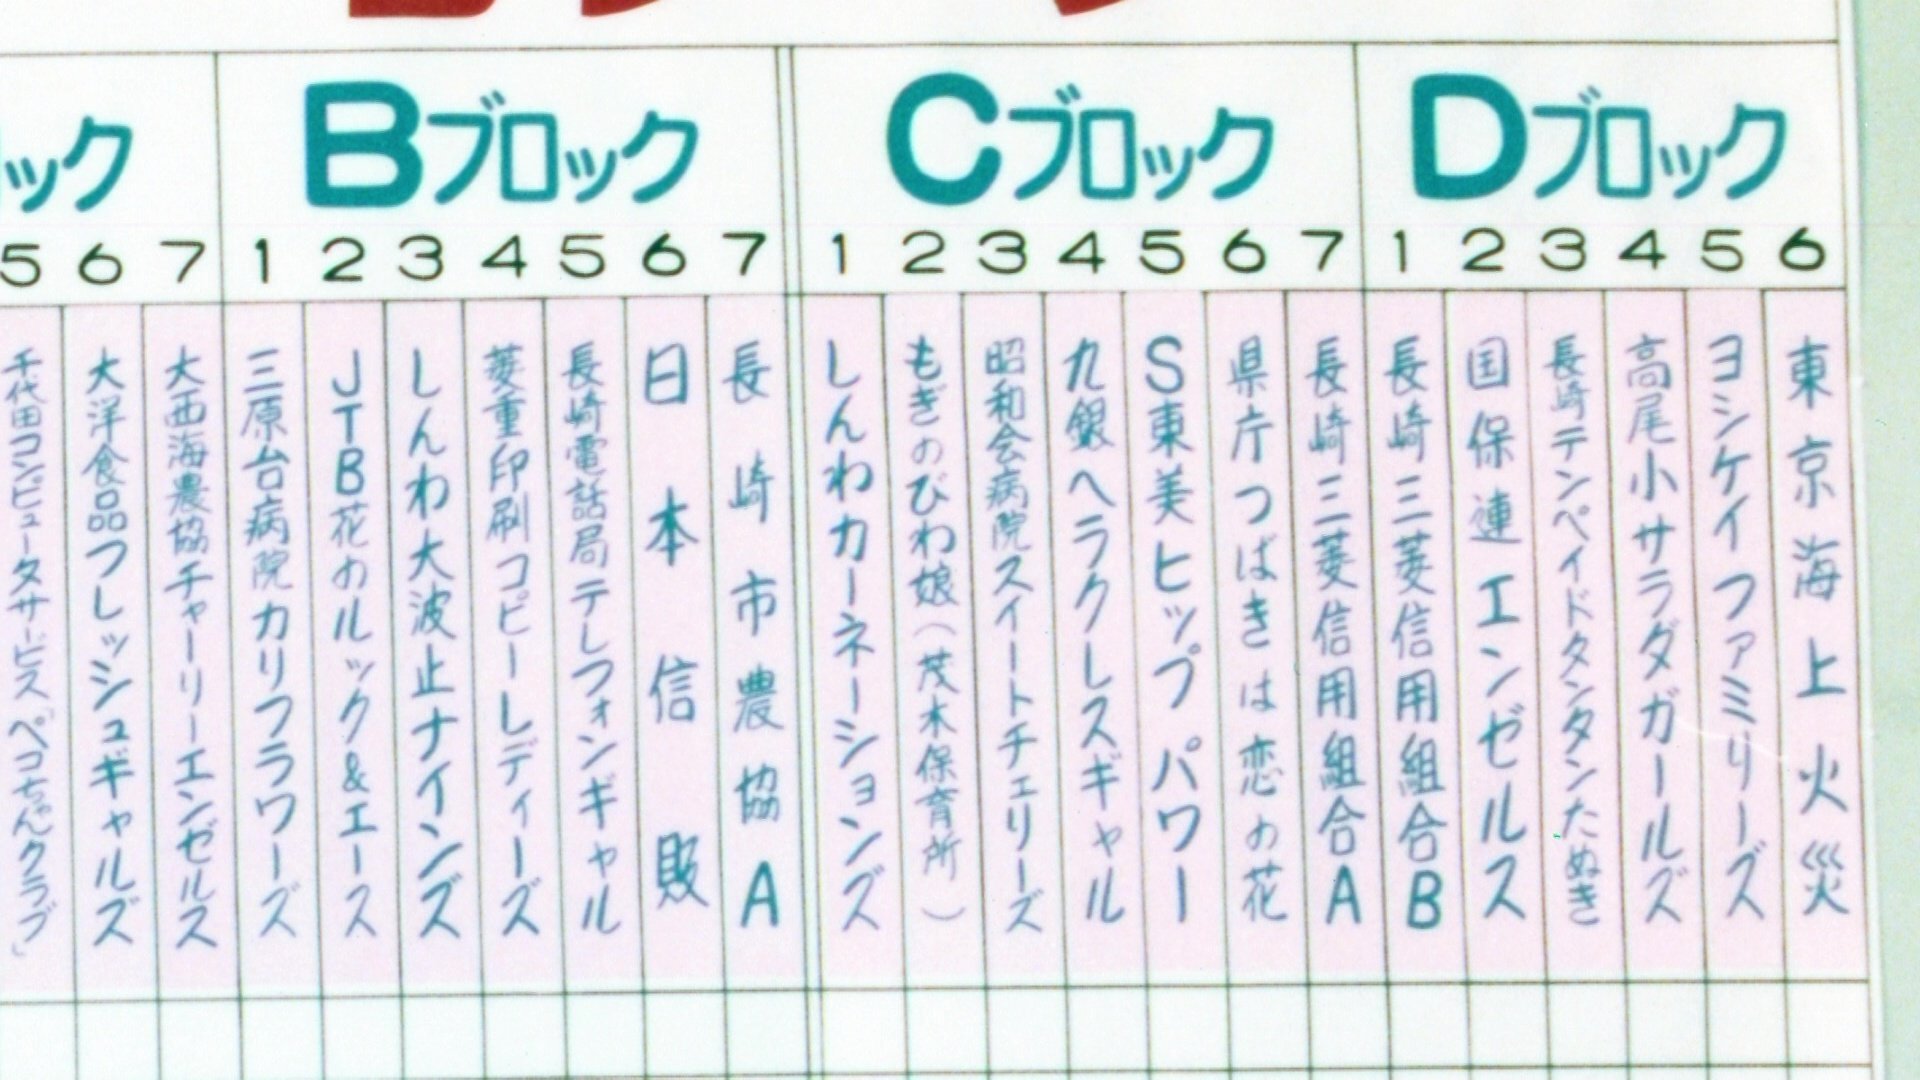 ック
5 6 7
千代田コンピュータサービス「ペコちゃんクラブ」
大洋食品フレッシュギャルズ
大西海農協チャーリーエンゼルス
Bブロック
1 2 3 4 5 6 7
三原台病院カリフラワーズ
JTB花のルック&エース
しんわ大波止ナインズ
菱重印刷コピーレディーズ
長崎電話局テレフォンギャル
日本信販
長崎市農協A
Cブロック
1 2 3 4 5 6 7
しんわカーネーションズ
もぎのびわ娘(茂木保育所)
昭和会病院スイートチェリーズ
九銀ヘラクレスギャル
S東美ヒップパワー
県庁つばきは恋の花
長崎三菱信用組合A
Dブロック
1 2 3 4 5 6
長崎三菱信用組合B
国保連エンゼルス
長崎テンペイドタンタンたぬき
高尾小サラダガールズ
ヨシケイファミリーズ
東京海上火災